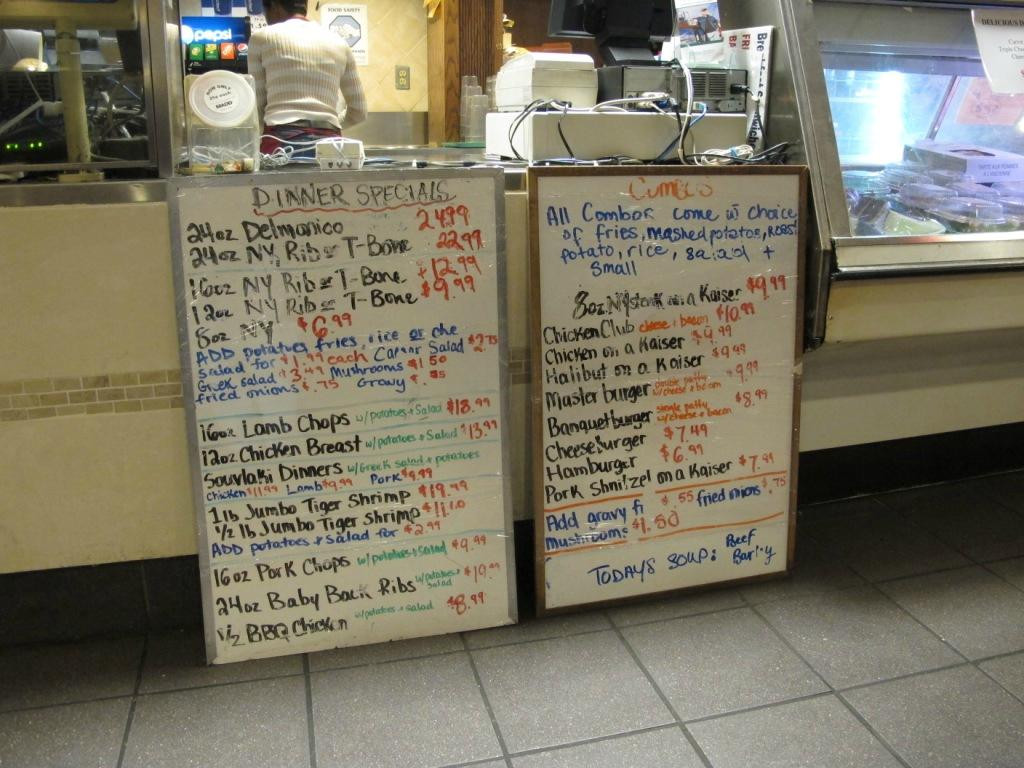 pepsi
FOOD SAFETY
DELICIOUS
DINNER SPECIALS
24oz Delmonico 24.99
24oz NY, Rib or T-Bone 22.99
16oz NY Rib or T-Bone $12.99
12oz NY Rib or T-Bone $9.99
8oz NY $6.99
ADD potatoes, fries, rice or che
salad for $1.99 each Caesar Salad $2.75
Greek salad $3.49 Mushrooms $1.50
fried onions $.75 Gravy
16oz Lamb Chops w/potatoes + Salad $18.99
12oz Chicken Breast w/potatoes + Salad $13.99
Souvlaki Dinners w/Greek salad + potatoes
Chicken $11.99 Lamb $9.99 Pork $9.99
1 lb Jumbo Tiger Shrimp $19.99
1/2 lb Jumbo Tiger Shrimp
ADD potatoes + Salad for $2.99
16oz Pork Chops w/potatoes + Salad $9.99
24oz Baby Back Ribs w/potatoes + Salad
1/2 BBQ Chicken w/potatoes + salad $8.99
Combos
All Combos come w choice
of fries, mashed potatoes, roast
potato, rice, salad +
small
8oz. NY steak on a Kaiser $9.99
Chicken Club cheese + bacon $10.99
Chicken on a Kaiser $9.99
Halibut on a Kaiser $9.99
Master burger double patty w/cheese + bacon $9.99
Banquet burger single patty w/cheese + bacon $8.99
Cheese Burger $7.49
Hamburger $6.99
Pork Shnitzel on a Kaiser $7.99
Add gravy $.55 fried onions $.75
mushrooms $1.50
TODAYS SOUP: Beef
Barley